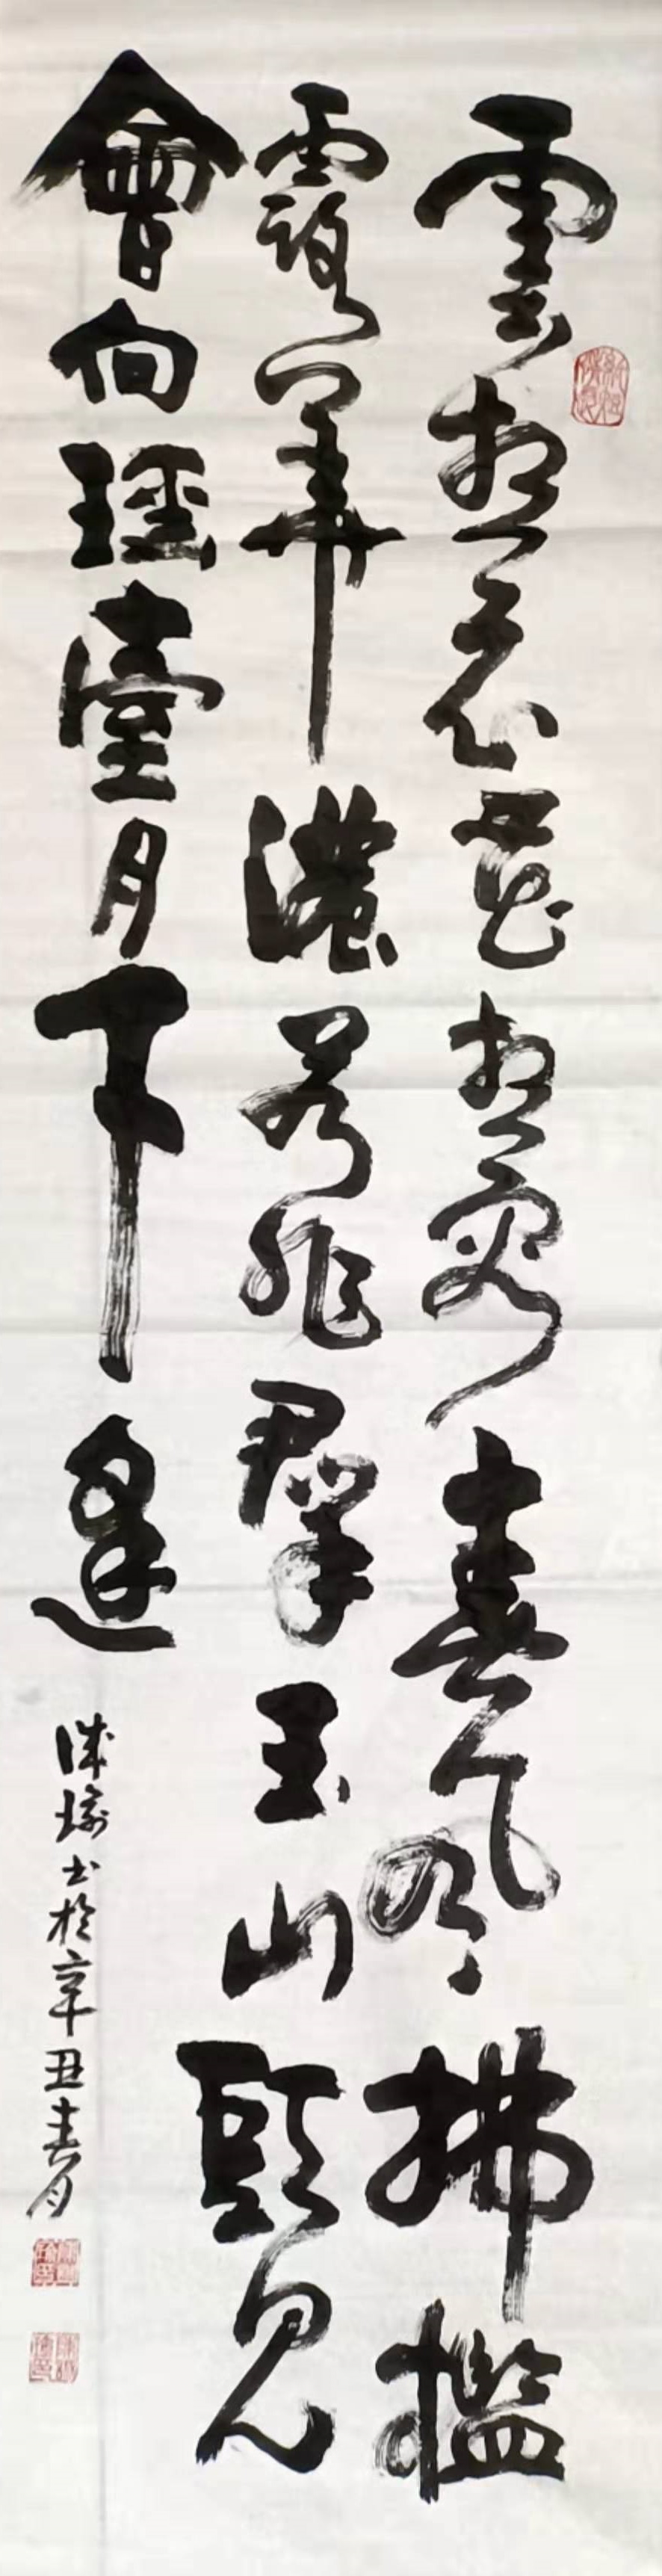 雲想衣花想容春風拂檻
露華濃若非群玉山頭見
會向瑶臺月下逢
書於辛丑春月